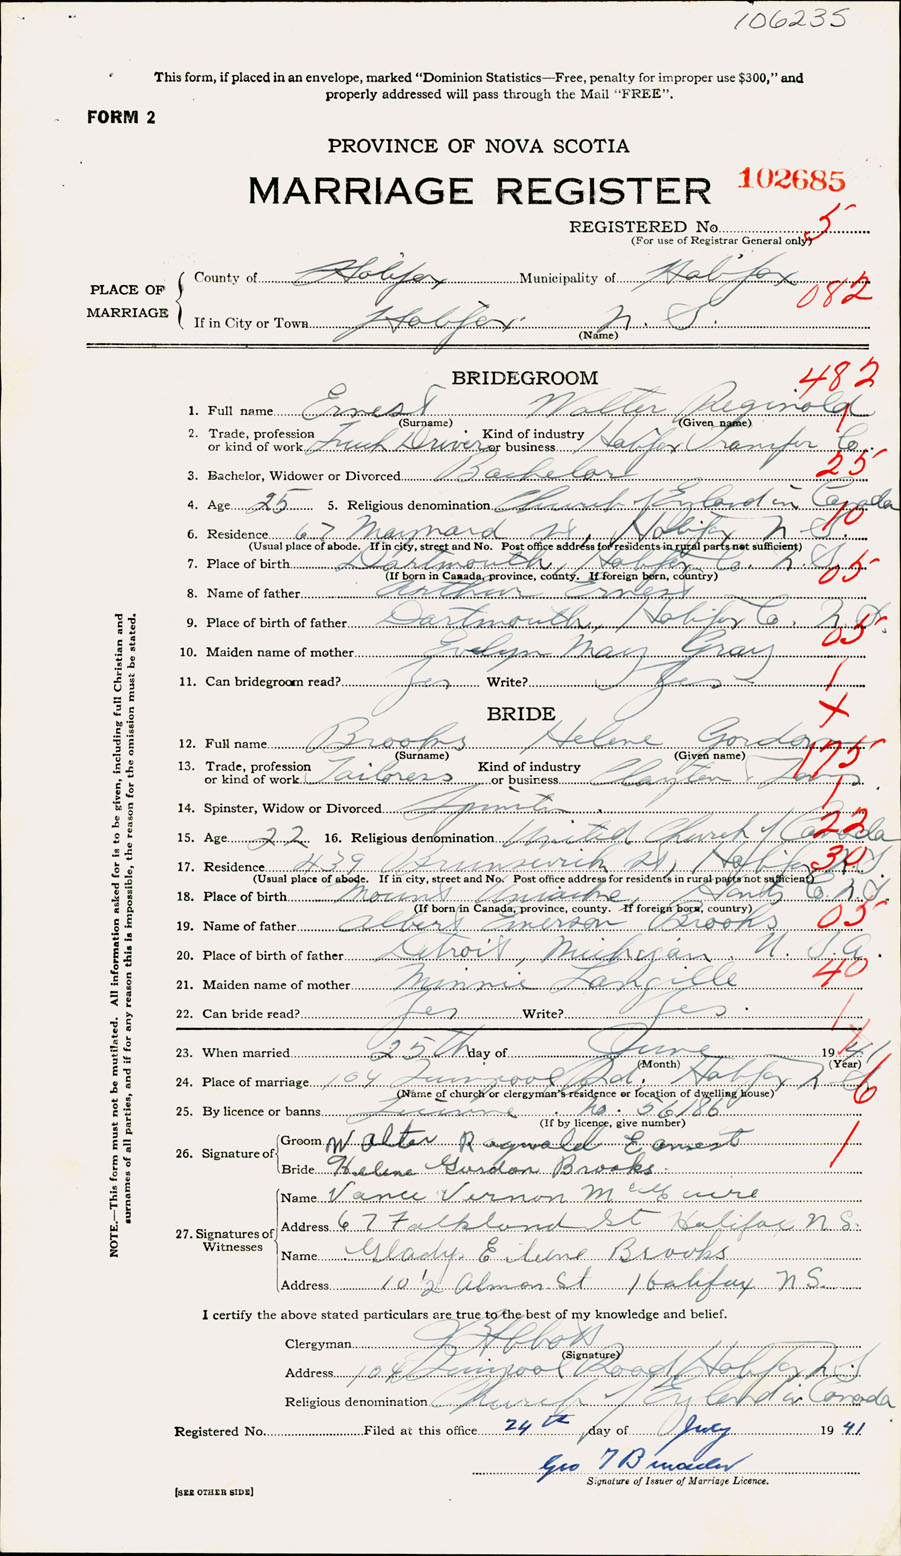 106235
This form, if placed in an envelope, marked "Dominion Statistics—Free, penalty for improper use $300," and
properly addressed will pass through the Mail "FREE".
FORM 2
PROVINCE OF NOVA SCOTIA
MARRIAGE REGISTER 102685
REGISTERED No. 5
(For use of Registrar General only)
PLACE OF MARRIAGE
County of Halifax Municipality of Halifax
082
If in City or Town Halifax N. S.
(Name)
BRIDEGROOM 482
1. Full name Ernest Walter Reginald
(Surname) (Given name)
2. Trade, profession or kind of work Truck Driver Kind of industry or business Halifax Transfer Co.
3. Bachelor, Widower or Divorced Bachelor 25
4. Age 25 5. Religious denomination Church of England in Canada
10
6. Residence 67 Maynard St, Halifax N. S.
(Usual place of abode. If in city, street and No. Post office address for residents in rural parts not sufficient)
7. Place of birth Dartmouth, Halifax Co. N. S. 05
(If born in Canada, province, county. If foreign born, country)
8. Name of father Arthur Ernest
9. Place of birth of father Dartmouth, Halifax Co. N. S.
05
10. Maiden name of mother Evelyn May Gray
11. Can bridegroom read? Yes Write? Yes 1
BRIDE X
12. Full name Brooks Helene Gordon
(Surname) (Given name) 175
13. Trade, profession or kind of work Tailoress Kind of industry or business Clayton & Sons
1
14. Spinster, Widow or Divorced Spinster
15. Age 22 16. Religious denomination United Church of Canada 22
17. Residence 439 Brunswick St, Halifax N.S. 30
(Usual place of abode. If in city, street and No. Post office address for residents in rural parts not sufficient)
18. Place of birth Mount Uniacke, Hants Co. N.S.
(If born in Canada, province, county. If foreign born, country) 05
19. Name of father Albert Emerson Brooks
20. Place of birth of father Detroit, Michigan. U. S. A.
40
21. Maiden name of mother Minnie Langille
22. Can bride read? Yes Write? Yes. 1
23. When married 25th day of June 1941
(Month) (Year)
24. Place of marriage 104 Quinpool Rd, Halifax N. S. 6
(Name of church or clergyman's residence or location of dwelling house)
25. By licence or banns Licence No. 56186
(If by licence, give number)
26. Signature of
Groom Walter Reginald Earnest 1
Bride Helene Gordon Brooks.
27. Signatures of Witnesses
Name Vance Vernon
Address 67 Falkland St Halifax N.S.
Name Gladys Eilene Brooks
Address 10½ Almon St Halifax N.S.
I certify the above stated particulars are true to the best of my knowledge and belief.
Clergyman
(Signature)
Address 104 Quinpool Road, Halifax N.S
Religious denomination Church of England in Canada
Registered No. Filed at this office 24th day of July 1941
Geo T
Signature of Issuer of Marriage Licence.
[SEE OTHER SIDE]
NOTE.—This form must not be mutilated. All information asked for is to be given, including full Christian and
surnames of all parties, and if for any reason this is impossible, the reason for the omission must be stated.